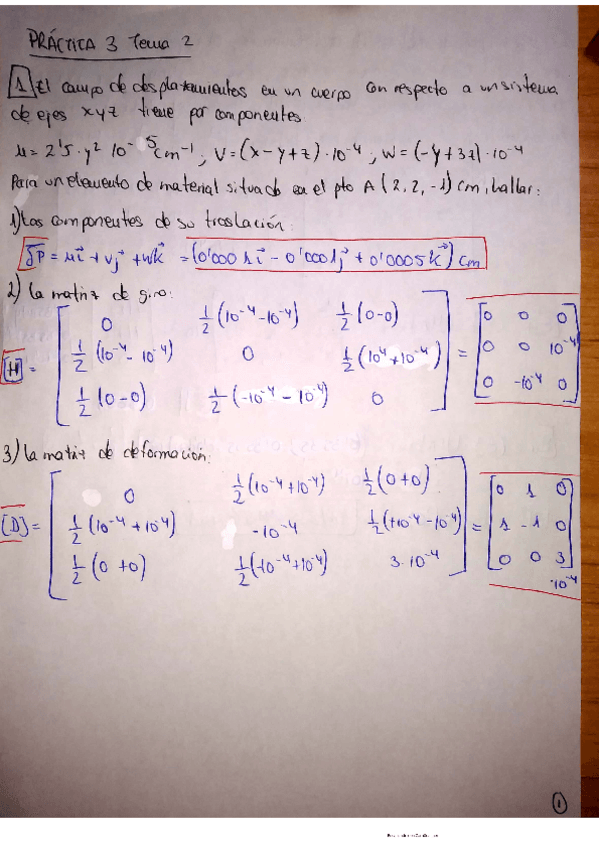 PRÁCTICA 3 Tema 2
1 El campo de desplazamientos en un cuerpo con respecto a un sistema
de ejes xyz tiene por componentes.
u = 2'5·y² 10⁻⁵ cm⁻¹ ; V = (x-y+z)·10⁻⁴ ; W = (-y+3z)·10⁻⁴
Para un elemento de material situado en el pto A (2, 2, -1) cm, hallar:
1) Los componentes de su traslación:
δP = ui + vj + wk = (0'0001i - 0'0001j + 0'0005k) cm
2) La matriz de giro:
[H] = [ 0 1/2(10⁻⁴-10⁻⁴) 1/2(0-0) ] = [ 0 0 0 ]
1/2(10⁻⁴-10⁻⁴) 0 1/2(10⁴+10⁻⁴) 0 0 10⁻⁴
1/2(0-0) 1/2(-10⁻⁴-10⁻⁴) 0 0 -10⁻⁴ 0
3) La matriz de deformación:
[D] = [ 0 1/2(10⁻⁴+10⁻⁴) 1/2(0+0) ] = [ 0 1 0 ]
1/2(10⁻⁴+10⁻⁴) -10⁻⁴ 1/2(+10⁻⁴-10⁻⁴) 1 -1 0
1/2(0+0) 1/2(-10⁻⁴+10⁻⁴) 3·10⁻⁴ 0 0 3
·10⁻⁴
1